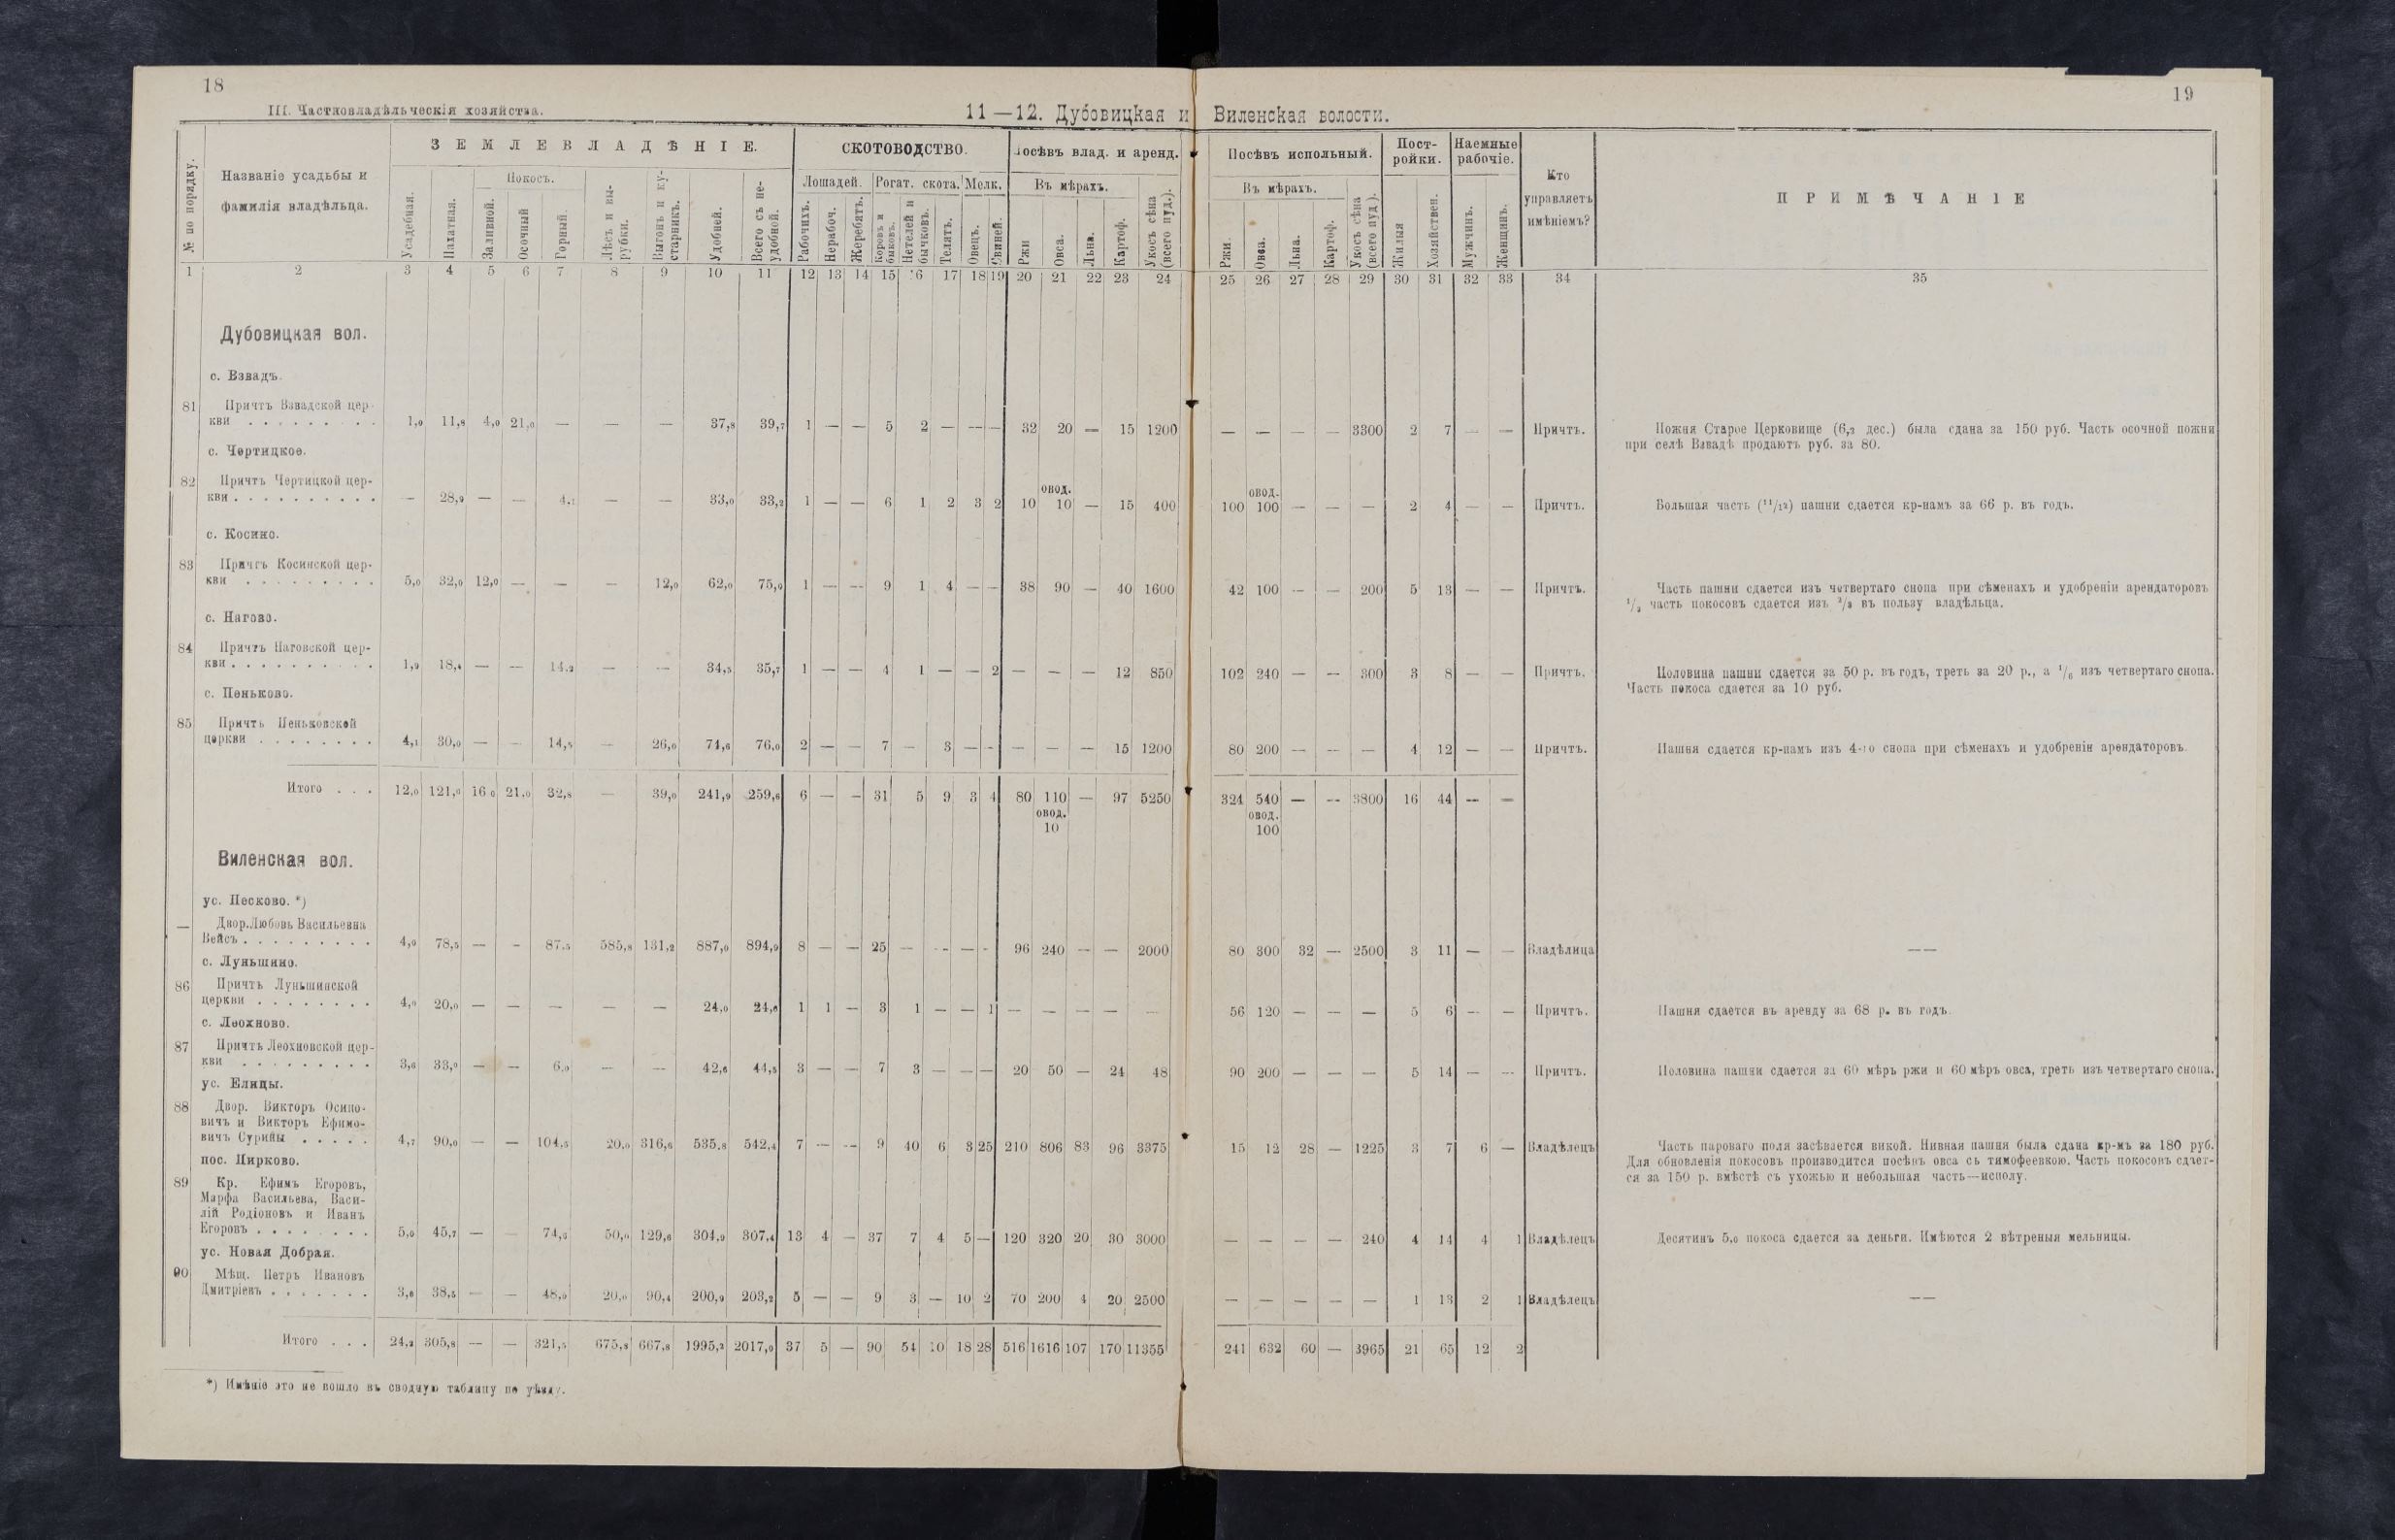 18
19
III. Частновладѣльческія хозяйства.
11—12. Дубовицкая и Виленская волости.
№ по порядку.
Названіе усадьбы и фамилія владѣльца.
ЗЕМЛЕВЛАДѢНІЕ.
СКОТОВОДСТВО.
Посѣвъ влад. и аренд.
Посѣвъ испольный.
Пост-ройки.
Наемные рабочіе.
Кто управляетъ имѣніемъ?
ПРИМѢЧАНІЕ
Покосъ.
Лошадей. Рогат. скота. Мелк.
Въ мѣрахъ.
Въ мѣрахъ.
Усадебная. Пахатная. Заливной. Осочный Горный. Лѣсъ и вы-рубки. Выгонъ и ку-старникъ. Удобней. Всего съ не-удобной.
Рабочихъ. Нерабоч. Жеребятъ. Коровъ и быковъ. Нетелей и бычковъ. Телятъ. Овецъ. Свиней.
Ржи Овса. Льна. Картоф. Укосъ сѣна (всего пуд.).
Ржи. Овса. Льна. Картоф. Укосъ сѣна (всего пуд.).
Жилыя Хозяйствен. Мужчинъ. Женщинъ.
1 2 3 4 5 6 7 8 9 10 11 12 13 14 15 16 17 18 19 20 21 22 23 24 25 26 27 28 29 30 31 32 33 34 35
Дубовицкая вол.
с. Взвадъ.
81 Причтъ Взвадской цер-
кви . . . 1,0 11,8 4,0 21,0 — — — 37,8 39,7 1 — — 5 2 — — — 32 20 — 15 1200 — — — — 3300 2 7 — — Причтъ. Пожня Старое Церковище (6,2 дес.) была сдана за 150 руб. Часть осочной пожни
при селѣ Взвадѣ продаютъ руб. за 80.
с. Чертицкое.
82 Причтъ Чертицкой цер-
овод. овод.
кви . . . — 28,9 — — 4,1 — — 33,0 33,2 1 — — 6 1 2 3 2 10 10 — 15 400 100 100 — — — 2 4 — — Причтъ. Большая часть (11/12) пашни сдается кр-намъ за 66 р. въ годъ.
с. Косино.
83 Причтъ Косинской цер-
кви . . . 5,0 32,0 12,0 — — — 12,0 62,0 75,0 1 — — 9 1 4 — — 38 90 — 40 1600 42 100 — — 200 5 13 — — Причтъ. Часть пашни сдается изъ четвертаго снопа при сѣменахъ и удобреніи арендаторовъ
часть покосовъ сдается изъ 2/3 въ пользу владѣльца.
с. Нагово.
84 Причтъ Наговской цер-
кви . . . 1,9 18,4 — — 14,2 — — 34,5 35,7 1 — — 4 1 — — 2 — — — 12 850 102 240 — — 300 3 8 — — Причтъ. Половина пашни сдается за 50 р. въ годъ, треть за 20 р., а 1/6 изъ четвертаго снопа.
Часть покоса сдается за 10 руб.
с. Пеньково.
85 Причтъ Пеньковской
церкви . . . 4,1 30,0 — — 14,5 — 26,0 74,6 76,0 2 — — 7 — 3 — — — — — 15 1200 80 200 — — — 4 12 — — Причтъ. Пашня сдается кр-намъ изъ 4-го снопа при сѣменахъ и удобреніи арендаторовъ.
Итого . . . 12,0 121,0 16,0 21,0 32,8 — 39,0 241,9 259,6 6 — — 31 5 9 3 4 80 110 — 97 5250 324 540 — — 3800 16 44 — —
овод. овод.
10 100
Виленская вол.
ус. Песково. *)
— Двор. Любовь Васильевна
Вейсъ . . . 4,0 78,5 — — 87,5 585,8 131,2 887,0 894,9 8 — — 25 — — — — 96 240 — — 2000 80 300 32 — 2500 3 11 — — Владѣлица ——
с. Луньшино.
86 Причтъ Луньшинской
церкви . . . 4,0 20,0 — — — — — 24,0 24,6 1 1 — 3 1 — — 1 — — — — — 56 120 — — — 5 6 — — Причтъ. Пашня сдается въ аренду за 68 р. въ годъ.
с. Леохново.
87 Причтъ Леохновской цер-
кви . . . 3,6 33,0 — — 6,0 — — 42,6 44,5 3 — — 7 3 — — — 20 50 — 24 48 90 200 — — — 5 14 — — Причтъ. Половина пашни сдается за 60 мѣръ ржи и 60 мѣръ овса, треть изъ четвертаго снопа.
ус. Елицы.
88 Двор. Викторъ Осипо-
вичъ и Викторъ Ефимо-
вичъ Сурины . . . 4,7 90,0 — — 104,5 20,0 316,6 535,8 542,4 7 — — 9 40 6 3 25 210 806 83 96 3375 15 12 28 — 1225 3 7 6 — Владѣлецъ Часть пароваго поля засѣвается викой. Нивная пашня была сдана кр-мъ за 180 руб.
Для обновленія покосовъ производится посѣвъ овса съ тимофеевкою. Часть покосовъ сдает-
ся за 150 р. вмѣстѣ съ ухожью и небольшая часть—исполу.
пос. Цирково.
89 Кр. Ефимъ Егоровъ,
Марфа Васильева, Васи-
лій Родіоновъ и Иванъ
Егоровъ . . . 5,0 45,7 — 74,6 50,0 129,6 304,9 307,4 13 4 — 37 7 4 5 — 120 320 20 30 3000 — — — — 240 4 14 4 1 Владѣлецъ Десятинъ 5,0 покоса сдается за деньги. Имѣются 2 вѣтреныя мельницы.
ус. Новая Добрая.
90 Мѣщ. Петръ Ивановъ
Дмитріевъ . . . 3,6 38,5 — — 48,0 20,0 90,4 200,9 203,2 5 — — 9 3 — 10 2 70 200 4 20 2500 — — — — — 1 13 2 1 Владѣлецъ ——
Итого . . . 24,2 305,8 — — 321,5 675,8 667,8 1995,2 2017,0 37 5 — 90 54 10 18 28 516 1616 107 170 11355 241 632 60 — 3965 21 65 12 2
*) Имѣніе это не вошло въ сводную таблицу по уѣзду.